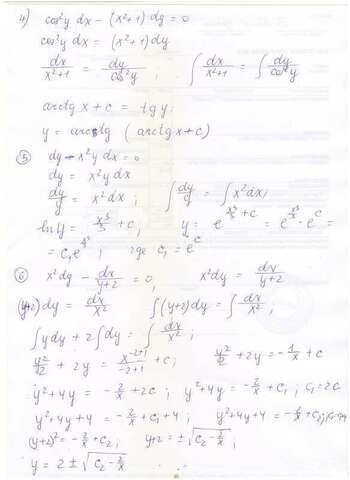 4) cos²y dx - (x²+1) dy = 0
cos²y dx = (x²+1) dy
dx/(x²+1) = dy/cos²y ; ∫ dx/(x²+1) = ∫ dy/cos²y
arctg x + c = tg y;
y = arctg (arctg x + c)
⑤ dy - x²y dx = 0
dy = x²y dx
dy/y = x² dx ; ∫ dy/y = ∫ x² dx ;
ln y = x³/3 + c ; y = e^(x³/3 + c) = e^(x³/3) · e^c =
= c₁e^(x³/3) ; где c₁ = e^c
⑥ x² dy - dx/(y+2) = 0, x² dy = dx/(y+2)
(y+2) dy = dx/x² ∫ (y+2) dy = ∫ dx/x² ;
∫ y dy + 2 ∫ dy = ∫ dx/x² ;
y²/2 + 2y = x^(-2+1)/(-2+1) + c ; y²/2 + 2y = -1/x + c
y² + 4y = -2/x + 2c ; y² + 4y = -2/x + c₁ ; c₁ = 2c
y² + 4y + 4 = -2/x + c₁ + 4 ; y² + 4y + 4 = -2/x + c₂ ;
(y+2)² = -2/x + c₂ ; y+2 = ±√(c₂ - 2/x) ;
y = 2 ± √(c₂ - 2/x)